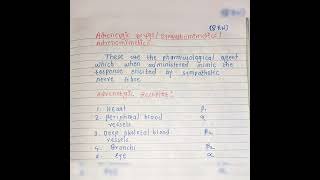 (8 Rw)
Adrenergic Drugs/ Sympathomimetics/
Adrenomimetics
These are the pharmacological agent
which when administered mimic the
response elicited by sympathetic
nerve fibre.
Adrenergic Receptors:
1. Heart β1
2. Peripheral blood α
vessels
3. Deep skeletal blood β2
vessels
4. Bronchi β2
5. eye α